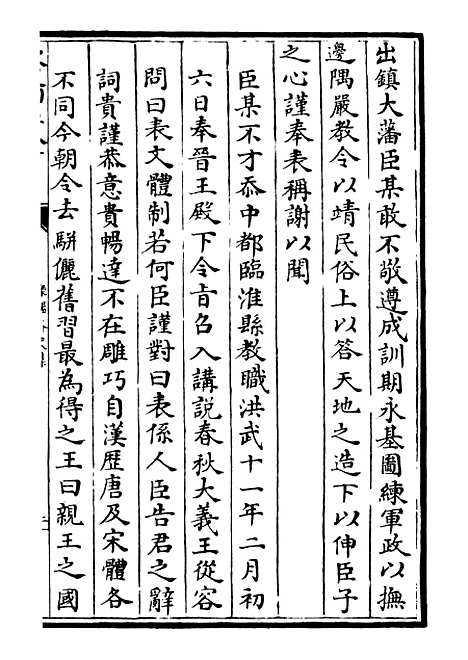 出鎮大藩臣某敢不敬遵成訓期永基圖練軍政以撫
邊隅嚴教令以靖民俗上以答天地之造下以伸臣子
之心謹奉表稱謝以聞
臣某不才忝中都臨淮縣教職洪武十一年二月初
六日奉晉王殿下令旨召入講說春秋大義王從容
問曰表文體制若何臣謹對曰表係人臣告君之辭
詞貴謹恭意貴暢達不在雕巧自漢歷唐及宋體各
不同今朝令去駢儷舊習最為得之王曰親王之國